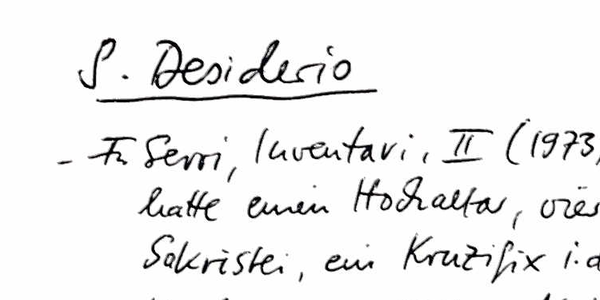 S. Desiderio
- Fr. Serri, Inventari, II (1973,
hatte einen Hochaltar,
Sakristei, ein Kruzifix i.